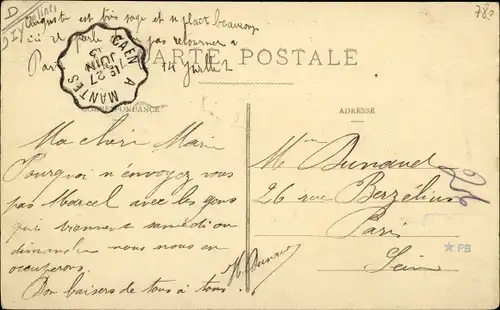 782
D
Auguste est très sage et se plaît beaucoup
ici il parle pas retourner à
Paris 14 Juillet
CARTE POSTALE
CAEN A MANTES
27
JUIN
13
CORRESPONDANCE
ADRESSE
Ma chère Marie
Pourquoi n'envoyez vous
pas Marcel avec les gens
qui viennent samedi ou
dimanche nous nous en
occuperons.
Bon baisers de tous à tous.
M. Dunaud
Mme Dunaud
26 rue Berzélius
Paris
Seine
PB